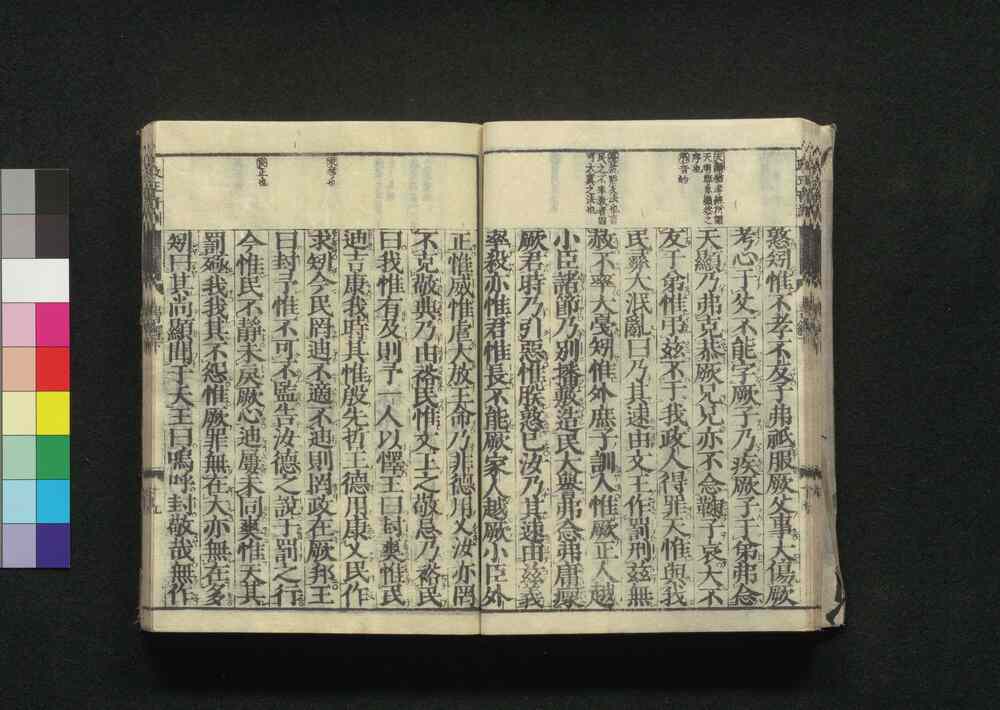 憝矧惟不孝不友子弗祗服厥父事大傷厥
考心于父不能字厥子乃疾厥子于弟弗念
天顯乃弗克恭厥兄兄亦不念鞠子哀大不
友于弟惟弔茲不于我政人得罪天惟與我
民彝大泯亂曰乃其速由文王作罰刑茲無
赦不率大戛矧惟外庶子訓人惟厥正人越
小臣諸節乃別播敷造民大譽弗念弗庸瘝
厥君時乃引惡惟朕憝已汝乃其速由茲義
率殺亦惟君惟長不能厥家人越厥小臣外
正惟威惟虐大放王命乃非德用乂汝亦罔
不克敬典乃由裕民惟文王之敬忌乃裕民
曰我惟有及則予一人以懌王曰封爽惟民
迪吉康我時其惟殷先哲王德用康乂民作
求矧今民罔迪不適不迪則罔政在厥邦王
曰封予惟不可不監告汝德之說于罰之行
今惟民不靜未戾厥心迪屢未同爽惟天其
罰殛我我其不怨惟厥罪無在大亦無在多
矧曰其尚顯聞于天王曰嗚呼封敬哉無作